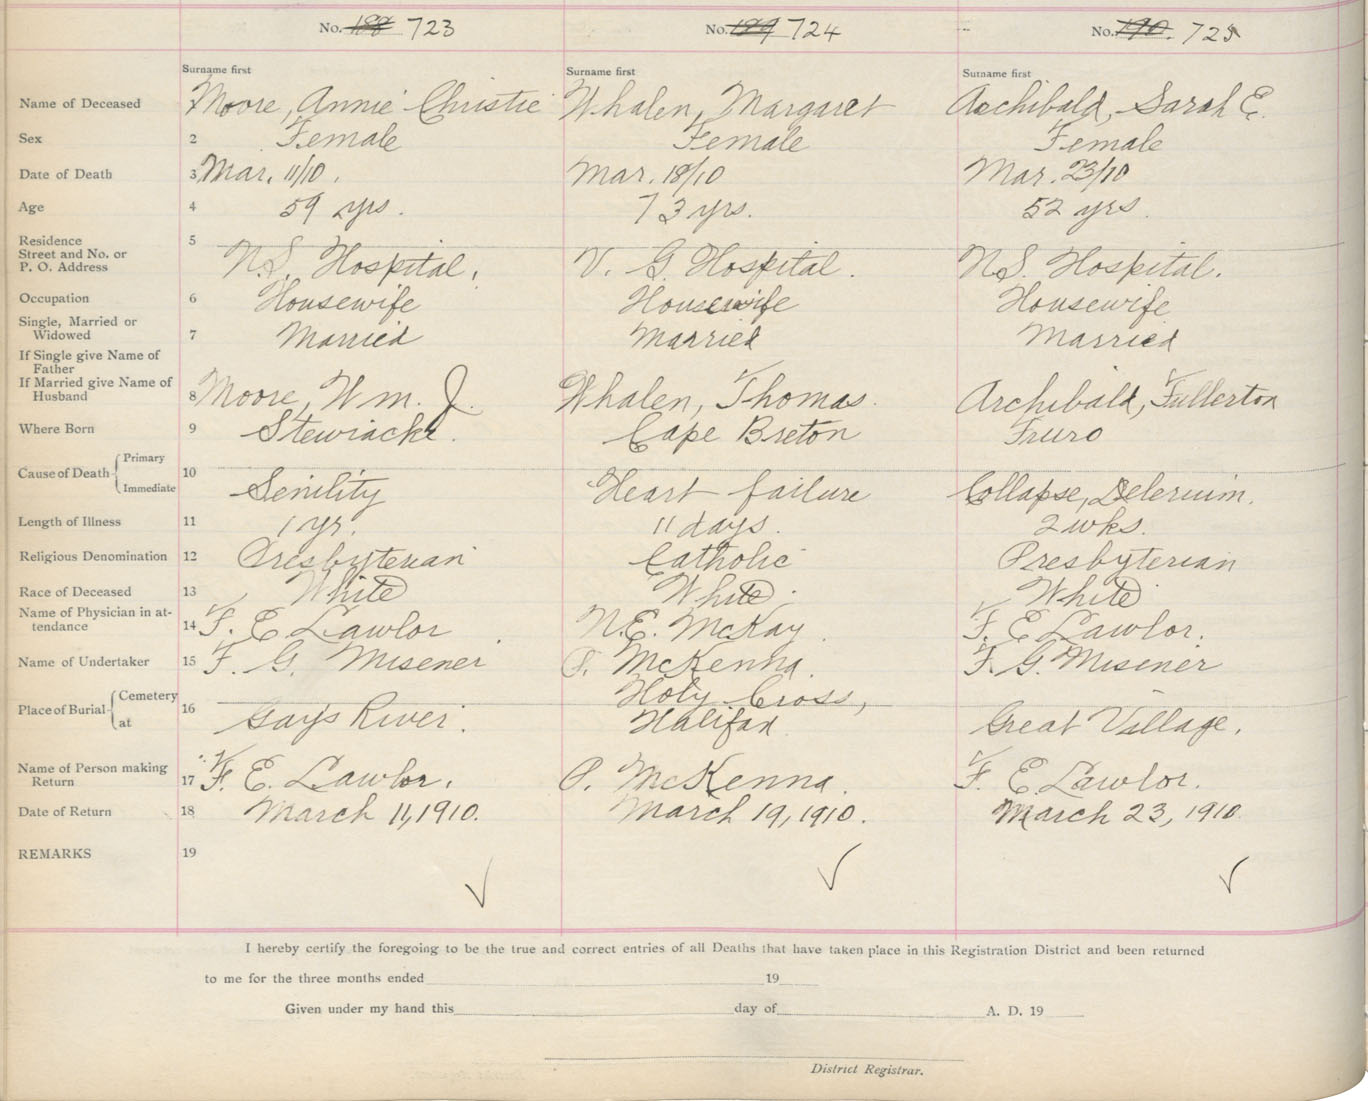 No. 188 723 No. 189 724 No. 190. 725
Surname first Surname first Surname first
Name of Deceased Moore, Annie Christie Whalen, Margaret Archibald, Sarah E.
Sex 2 Female Female Female
Date of Death 3 Mar. 11/10. Mar. 18/10 Mar. 23/10
Age 4 59 yrs. 73 yrs. 52 yrs.
Residence 5
Street and No. or
P. O. Address N.S. Hospital. V. G. Hospital. N.S. Hospital.
Occupation 6 Housewife Housewife Housewife
Single, Married or
Widowed 7 Married Married Married
If Single give Name of
Father
If Married give Name of
Husband 8 Moore, Wm. J. Whalen, Thomas. Archibald, Fullerton
Where Born 9 Stewiacke. Cape Breton Truro
Primary
Cause of Death 10
Immediate Senility Heart failure Collapse, Deleruim.
Length of Illness 11 1 yr. 11 days. 2 wks.
Religious Denomination 12 Presbyterian Catholic Presbyterian
Race of Deceased 13 White White. White
Name of Physician in at-
tendance 14 F. E Lawlor N.E. McKay. F. E Lawlor.
Name of Undertaker 15 F. G. Misener P. McKenna. F. G. Misener
Cemetery Holy Cross,
Place of Burial 16
at Gays River. Halifax Great Village.
Name of Person making
Return 17 F. E. Lawlor. P. McKenna. F. E Lawlor.
Date of Return 18 March 11, 1910. March 19, 1910. March 23, 1910.
REMARKS 19
I hereby certify the foregoing to be the true and correct entries of all Deaths that have taken place in this Registration District and been returned
to me for the three months ended 19
Given under my hand this day of A. D. 19
District Registrar.